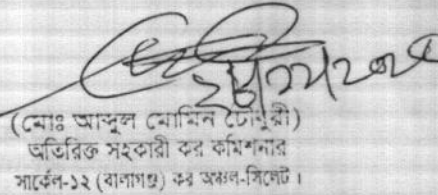 (মোঃ আব্দুল মোমিন চৌধুরী)
অতিরিক্ত সহকারী কর কমিশনার
সার্কেল-১২ (বালাগঞ্জ) কর অঞ্চল-সিলেট।